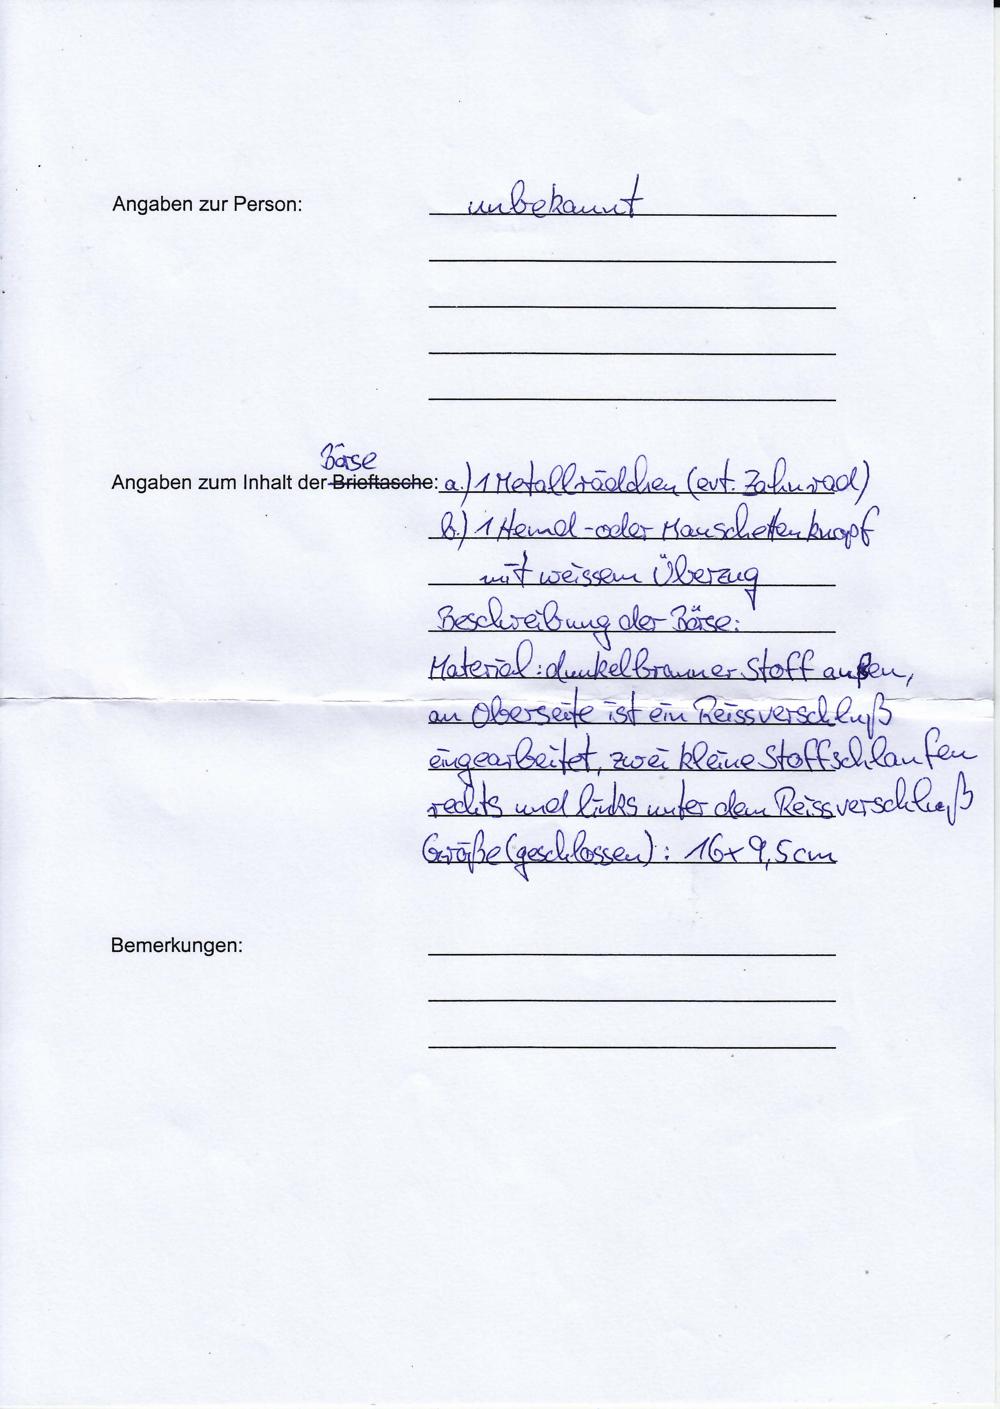 Angaben zur Person: unbekannt
Börse
Angaben zum Inhalt der Brieftasche: a.) 1 Metallrädchen (evt. Zahnrad)
b.) 1 Hemd- oder Manschettenknopf
mit weissem Überzug
Beschreibung der Börse:
Material: dunkelbrauner Stoff außen,
an Oberseite ist ein Reissverschluß
eingearbeitet, zwei kleine Stoffschlaufen
rechts und links unter dem Reissverschluß
Größe (geschlossen): 16x9,5cm
Bemerkungen: